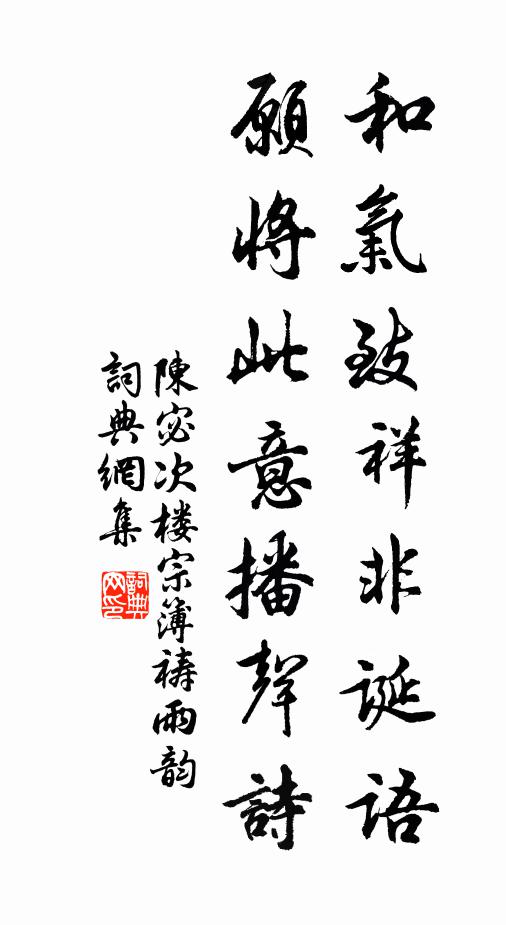 和氣致祥非誕語
願將此意播聲詩
陳宓次楼宗簿禱雨韵
詞典網集
詞典网印